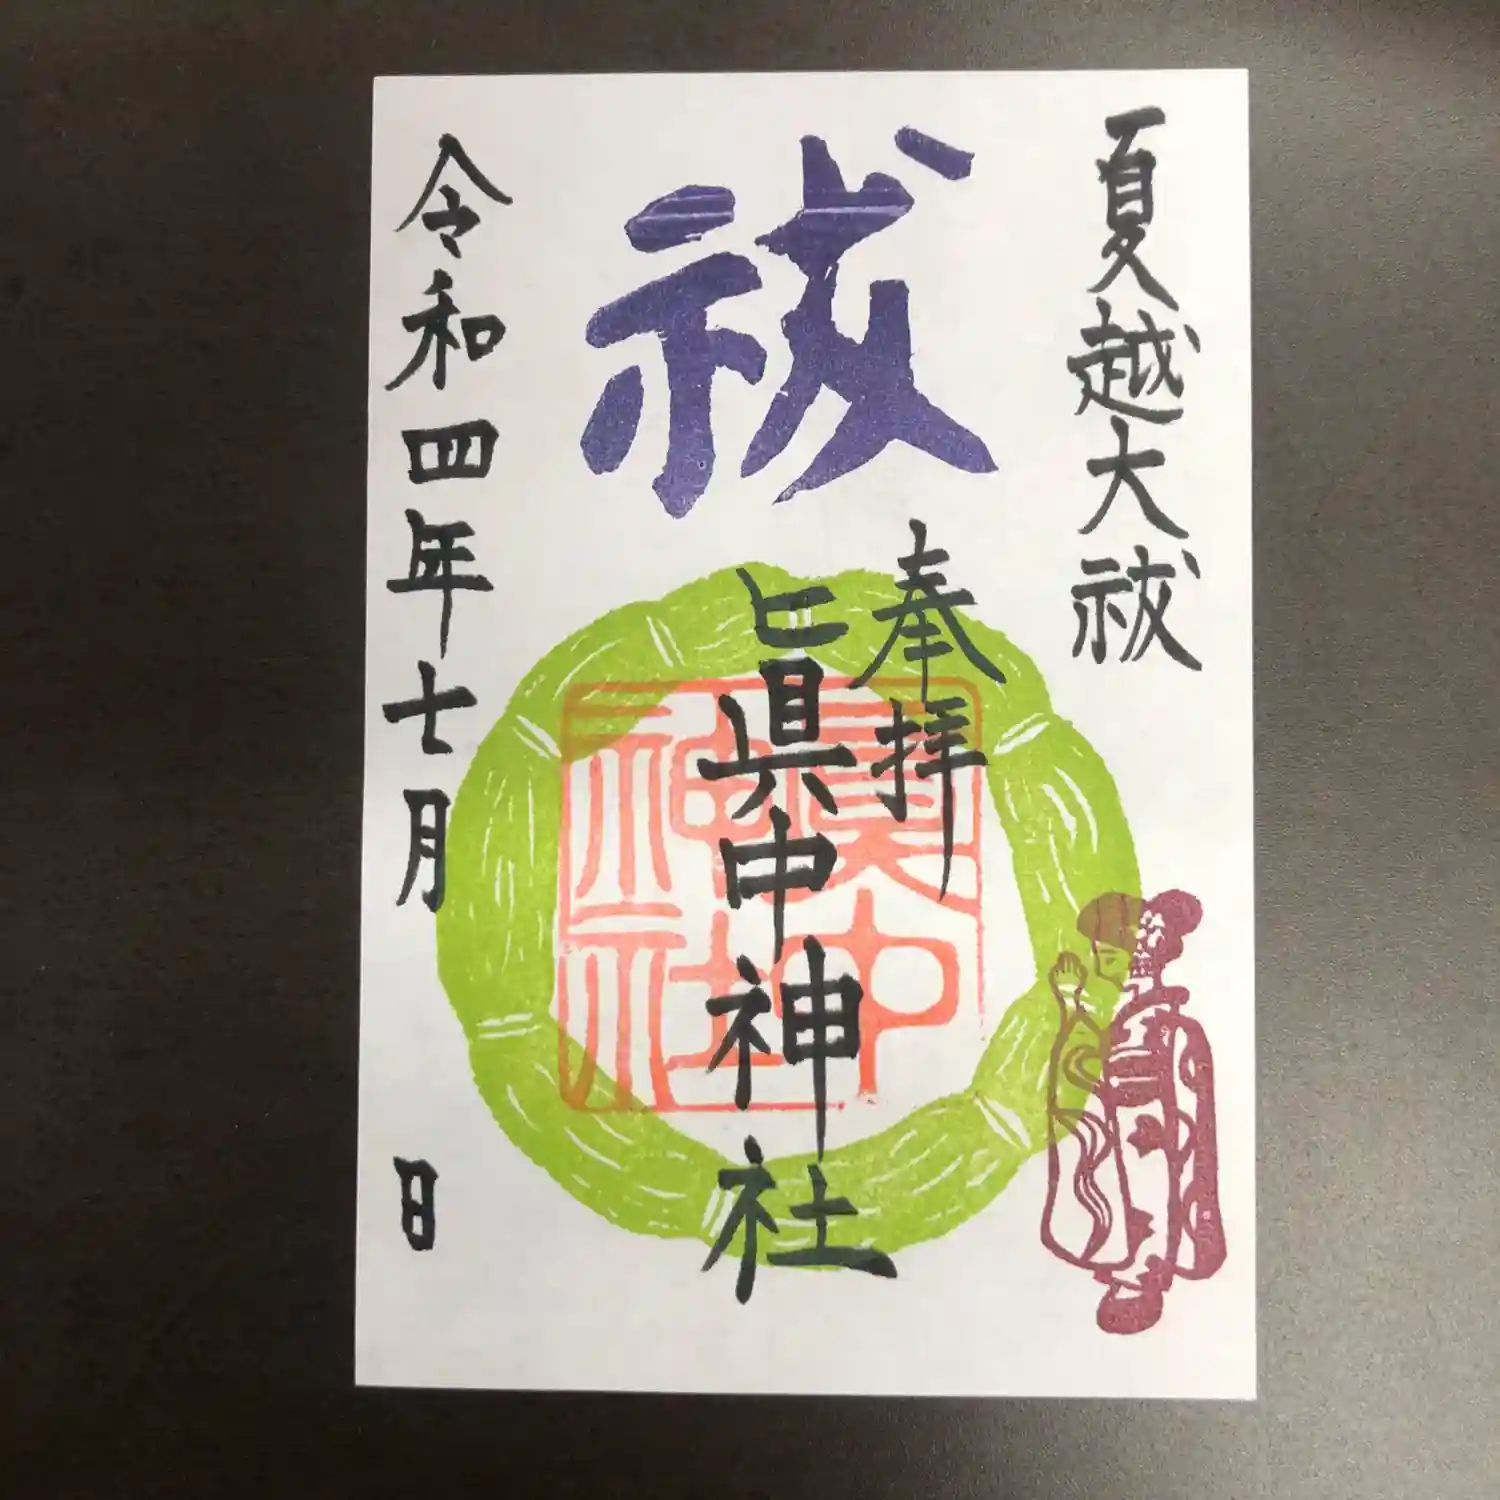 夏越大祓
祓
奉拝
眞中神社
眞中
神社
令和四年七月 日